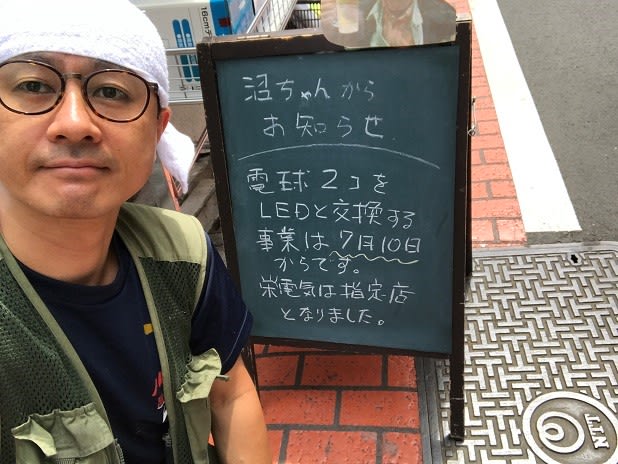 16cm
沼ちゃんから
お知らせ
電球2コを
LEDと交換する
事業は7月10日
からです。
栄電気は指定店
となりました。
NTT